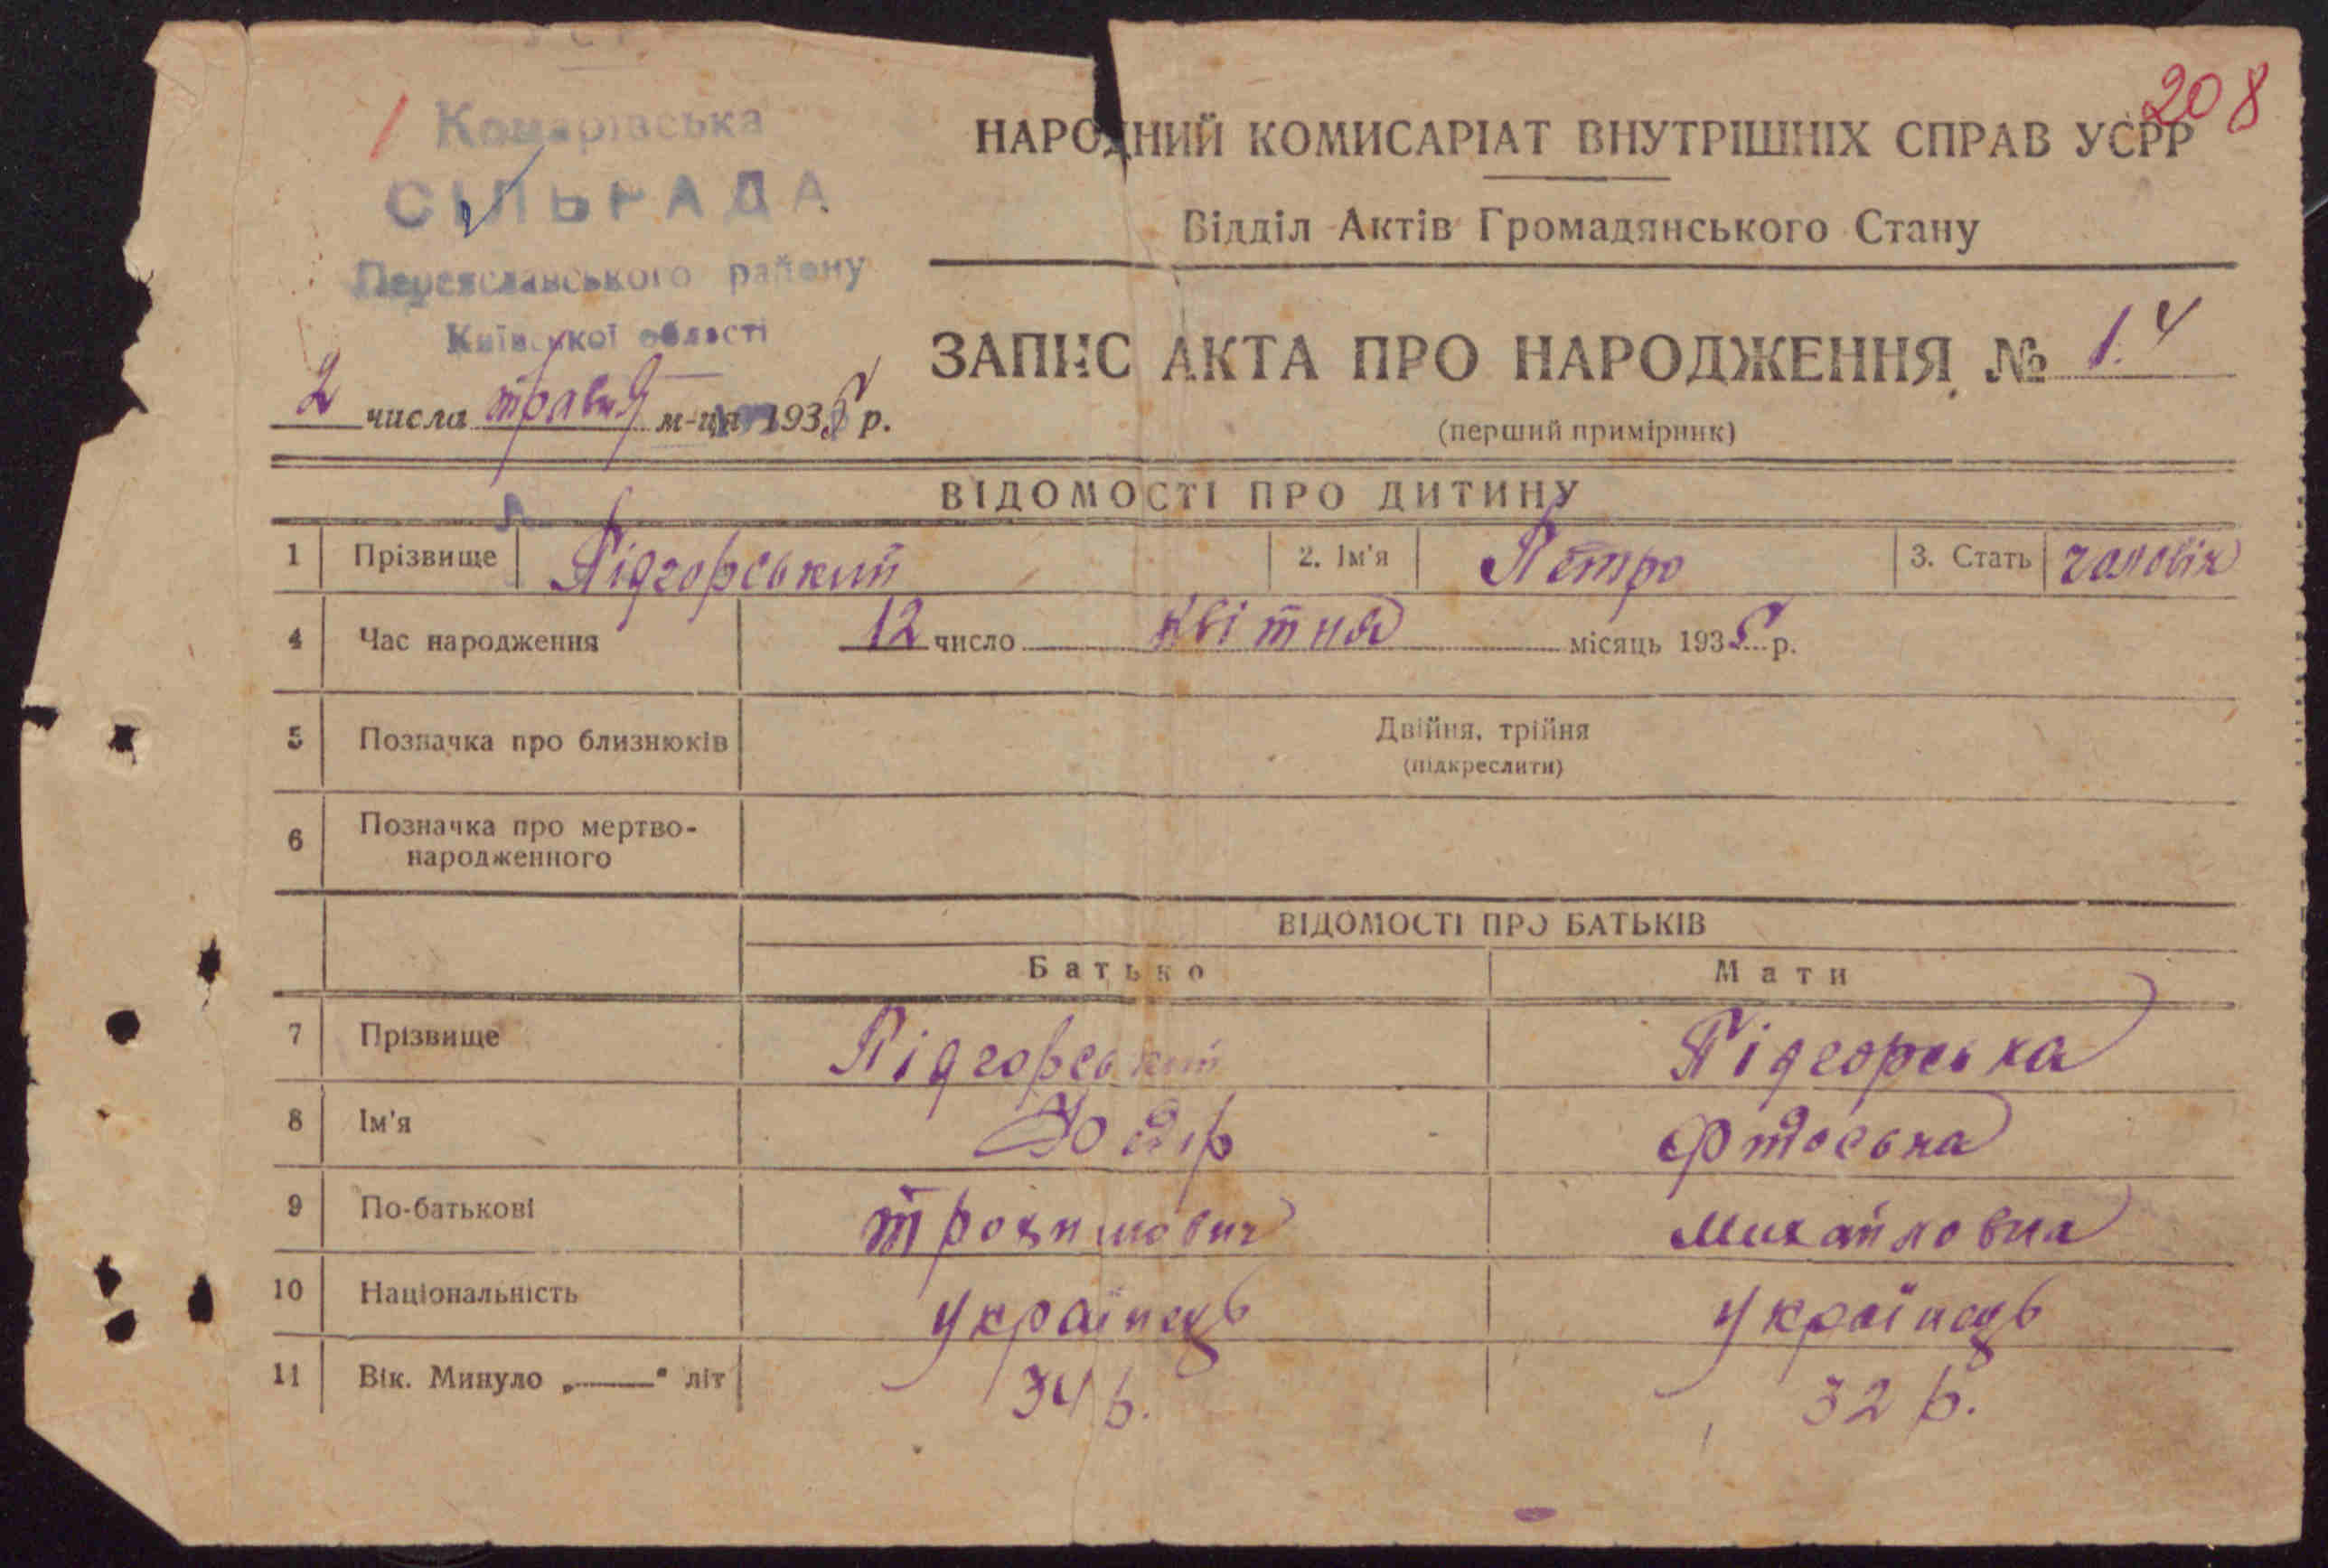 208
Комарівська
СІЛЬРАДА
Переяславського району
Київської області
2 числа травня м-ця 1935 р.
НАРОДНИЙ КОМИСАРІАТ ВНУТРІШНІХ СПРАВ УСРР
Відділ Актів Громадянського Стану
ЗАПИС АКТА ПРО НАРОДЖЕННЯ № 14
(перший примірник)
ВІДОМОСТІ ПРО ДИТИНУ
1 Прізвище Підгорський 2. Ім'я Петро 3. Стать чоловік
4 Час народження 12 число квітня місяць 1935 р.
5 Позначка про близнюків Двійня, трійня
(підкреслити)
6 Позначка про мертво-
народженного
ВІДОМОСТІ ПРО БАТЬКІВ
Батько Мати
7 Прізвище Підгорський Підгорська
8 Ім'я
9 По-батькові Трохимович Михайловна
10 Національність українець українець
11 Вік. Минуло „——" літ 34 р. 32 р.